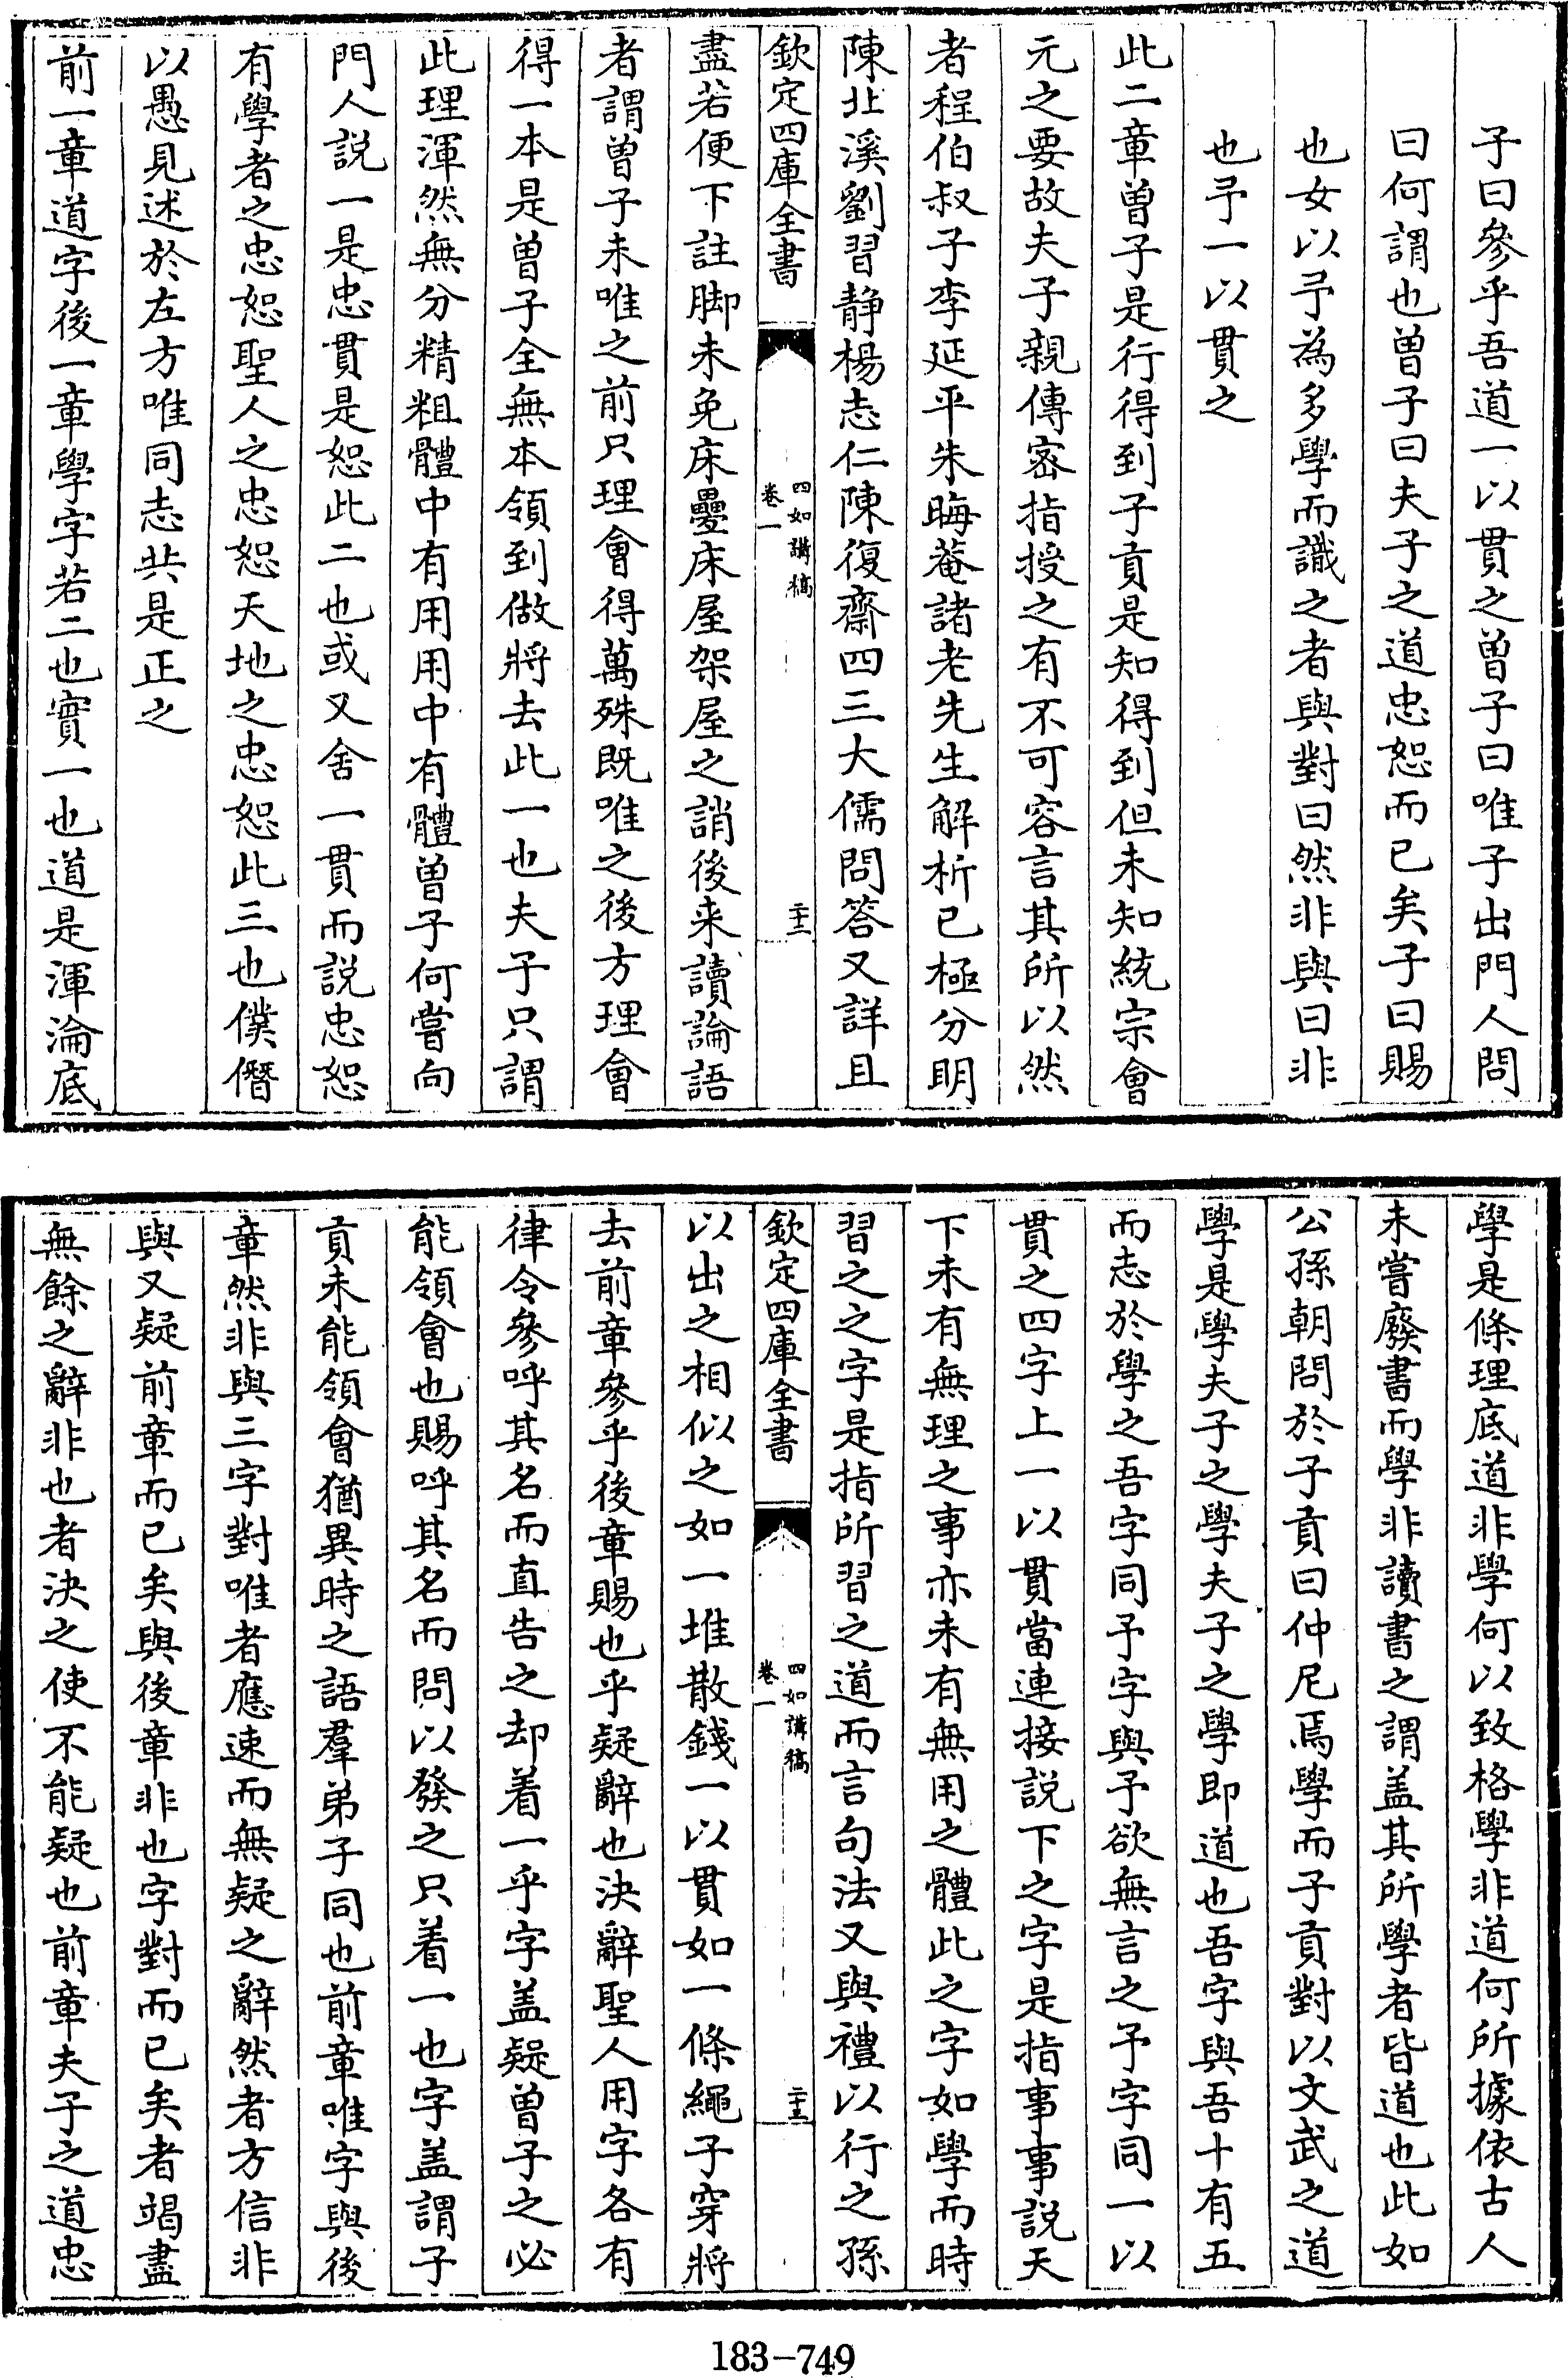 子曰參乎吾道一以貫之曽子曰唯子出門人問
曰何謂也曽子曰夫子之道忠恕而已矣子曰賜
也女以予為多學而識之者與對曰然非與曰非
也予一以貫之
此二章曽子是行得到子貢是知得到但未知統宗會
元之要故夫子親傳密指授之有不可容言其所以然
者程伯叔子李延平朱晦菴諸老先生解析已極分明
陳北溪劉習静楊志仁陳復齋四三大儒問答又詳且
欽定四庫全書
四如講稿
卷一
二十二
盡若便下註脚未免床疊床屋架屋之誚後来讀論語
者謂曽子未唯之前只理會得萬殊既唯之後方理會
得一本是曽子全無本領到做將去此一也夫子只謂
此理渾然無分精粗體中有用用中有體曽子何嘗向
門人説一是忠貫是恕此二也或又舍一貫而説忠恕
有學者之忠恕聖人之忠恕天地之忠恕此三也僕僭
以愚見述於左方唯同志共是正之
前一章道字後一章學字若二也實一也道是渾淪底
學是條理底道非學何以致格學非道何所據依古人
未嘗廢書而學非讀書之謂盖其所學者皆道也此如
公孫朝問於子貢曰仲尼焉學而子貢對以文武之道
學是學夫子之學夫子之學即道也吾字與吾十有五
而志於學之吾字同予字與予欲無言之予字同一以
貫之四字上一以貫當連接説下之字是指事事説天
下未有無理之事亦未有無用之體此之字如學而時
習之之字是指所習之道而言句法又與禮以行之孫
欽定四庫全書
四如講稿
卷一
二十三
以出之相似之如一堆散錢一以貫如一條繩子穿將
去前章參乎後章賜也乎疑辭也決辭聖人用字各有
律令參呼其名而直告之却着一乎字盖疑曽子之必
能領會也賜呼其名而問以發之只着一也字盖謂子
貢未能領會猶異時之語羣弟子同也前章唯字與後
章然非與三字對唯者應速而無疑之辭然者方信非
與又疑前章而已矣與後章非也字對而已矣者竭盡
無餘之辭非也者決之使不能疑也前章夫子之道忠
183-749